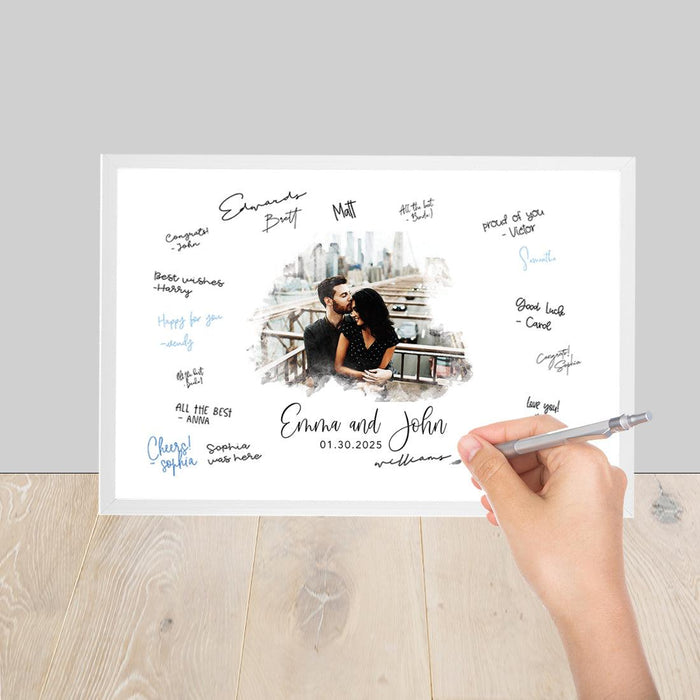 Edwards
Brett
Matt
All the best
- Bride)
proud of you
- Victor
Congrats!
- John
Samantha
Best wishes
-Harry
Good luck
- Carol
Happy for you
-wendy
Congrats!
Sophia
All the best
- Bride)
love you!
ALL THE BEST
- ANNA
Emma and John
01.30.2025
Cheers!
- sophia
Sophia
was here
williams